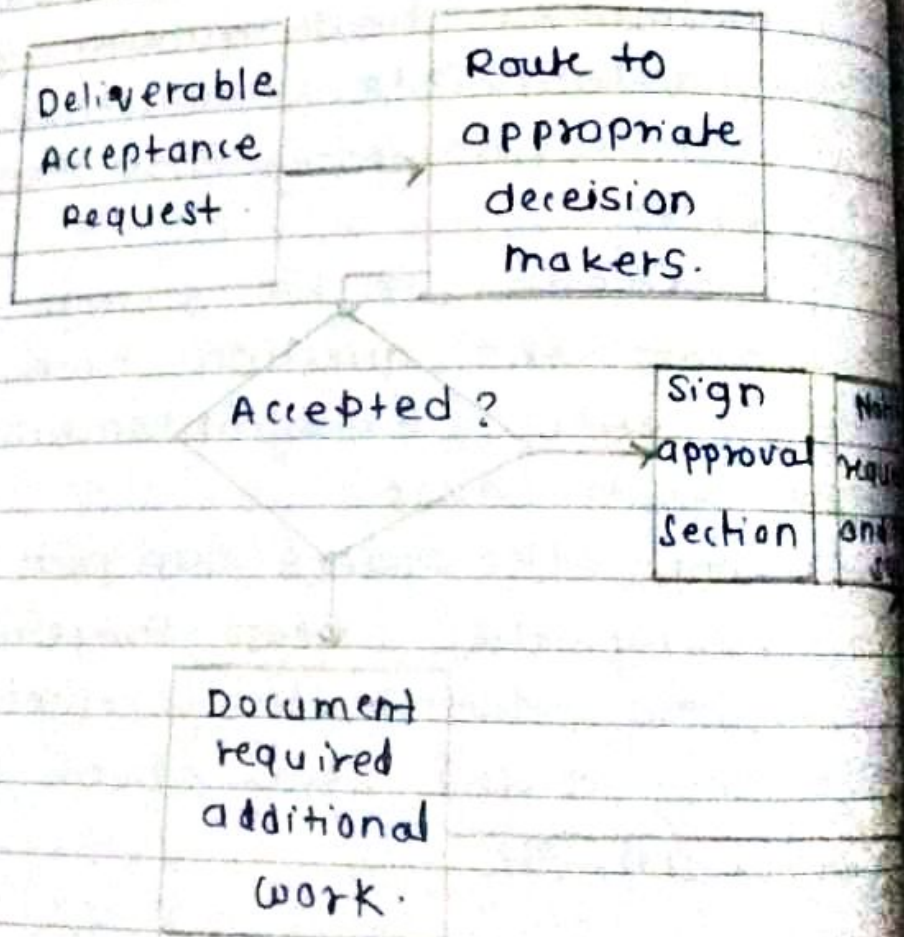 Deliverable
Acceptance
Request
Route to
appropriate
deceision
makers.
Accepted ?
Sign
approval
Section
Document
required
additional
work.